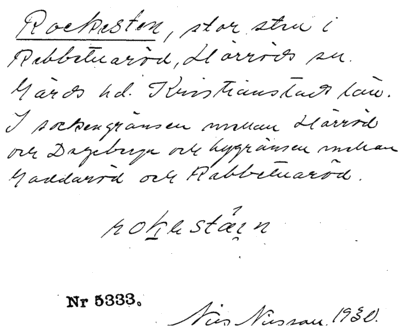 Rockesten, stor sten i
Rabbetuaröd, Hörröds sn.
Gärds hd. Kristianstads län.
I sockengränsen mellan Hörröd
och Degeberga och bygränsen mellan
Gaddaröd och Rabbetuaröd.
rokestäin
Nr 5333.
Nils Nilsson. 1930.